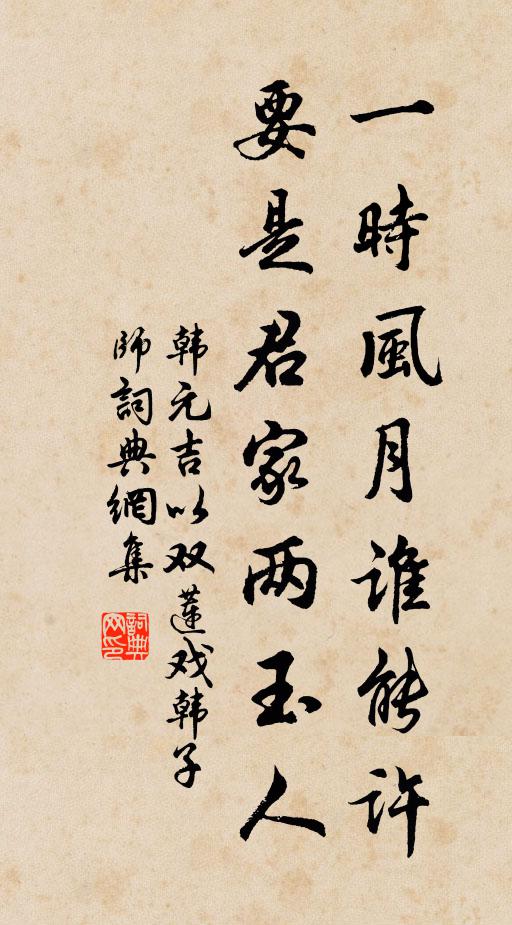 一時風月谁能许
要是君家两玉人
韩元吉以双蓮戏韩子
师詞典網集
詞典网印